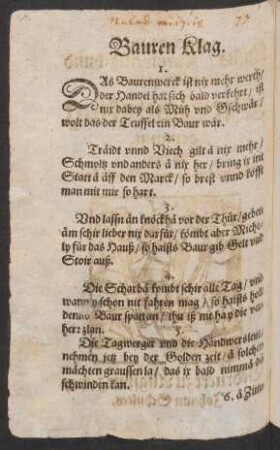 77
Bauren Klag.
1.
DAs Baurenwerck ist nix mehr werth/
der Handel hat sich bald verkehrt / ist
nix dabey als Müh vnd Gschwär/
wolt das der Teuffel ein Baur wär.
2.
Träidt vnnd Viech gilt ā nix mehr/
Schmoltz vnd anders ā nix her / bring ix int
Statt ā äff den Marck / so brest vnnd kofft
man mit mir so hart.
3.
Vnd lassn än knöckhā vor der Thür/ geben
äm schir lieber nix dar für / kombt aber Miche-
ly für das Hauß / so haists Baur gib Gelt vnd
Stoir auß.
4.
Die Scharbā kombt schir alle Tag / vnd
wann y schon nit fahren mag / so haists holt
Baur spann an / thu ix nit hay die
5.
Die Tagwerger vnd die Handwerckslein/
nehmen jetz bey der Golden zeit / ā solchen
mächten graussen la / das ix bald nimmā da
schwinden kan.
6. ā Zim-